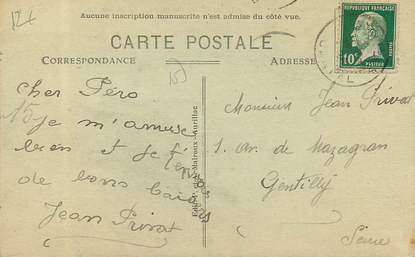 124
Aucune inscription manuscrite n'est admise du côté vue.
CARTE POSTALE
CORRESPONDANCE
ADRESSE
REPUBLIQUE FRANÇAISE
10
PASTEUR
15
cher Péro
15
je m'amuse
bien et je t'envoie
de bons baisers
Jean Privat
Malroux - Aurillac
Monsieur Jean Privat
1. Av. de Mazagran
Gentilly
Seine